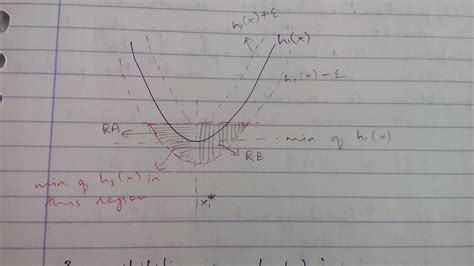 h₁(x)+ε
h₁(x)
h₁(x)-ε
RA
min of h₁(x)
RB
min of h₂(x) in
this region
x₁*